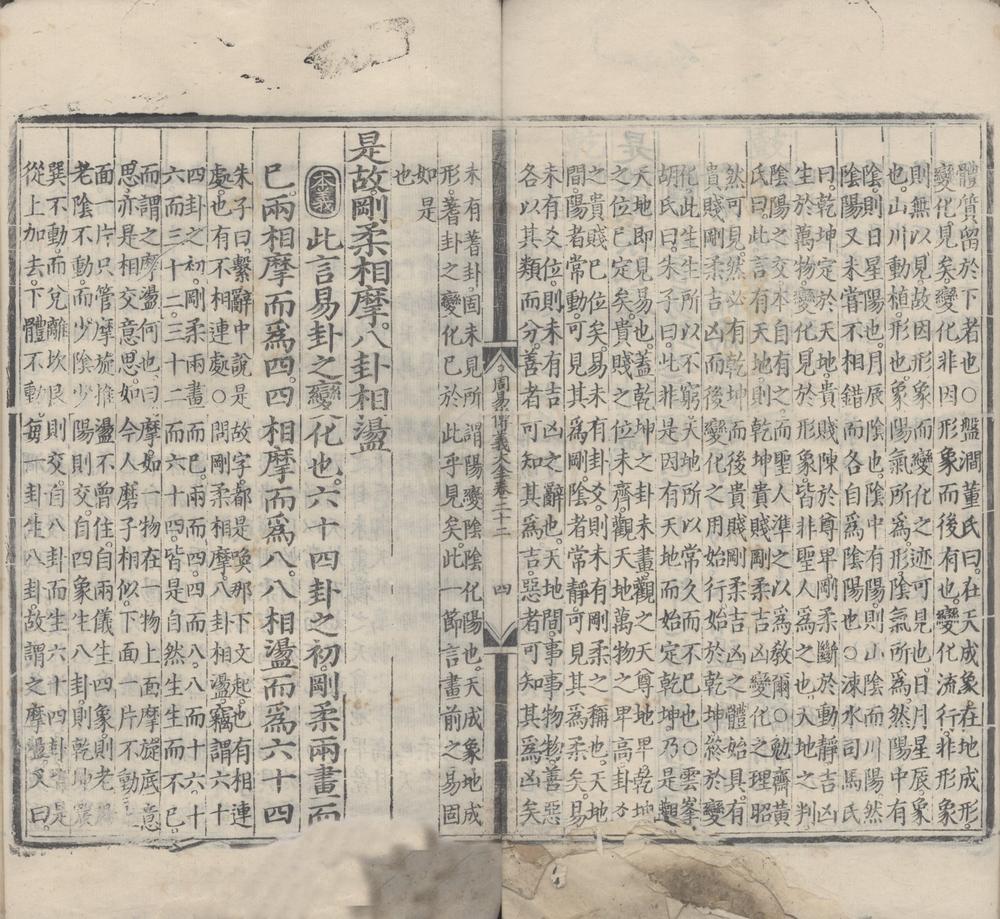 體質留於下者也○盤澗董氏曰在天成象在地成形
變化見矣變化非因形象而後有也變化流行非形象
則無以見故因形象而變化之迹可見也日月星辰象
也山川動植形也象陽氣所爲形陰氣所爲然陽中有
陰則日星陽也月辰陰也陰中有陽則山陰而川陽然
陰陽又未嘗不相錯而各自爲陰陽也○涑水司馬氏
曰乾坤定於天地貴賤陳於尊卑剛柔斷於動靜吉凶
生於萬物變化見於形象皆非聖人爲之也天地之判
陰陽之交本自有之而聖人準之以爲敎爾○勉齋黃
氏曰此言有天地則乾坤貴賤剛柔吉凶變化之理昭
然可見然必有乾坤而後貴賤剛柔吉凶之體始具有
貴賤剛柔吉凶而後變化之用始行始於乾坤終於變
化此生生所以不窮天地所以常久而不已也○雲峯
胡氏曰朱子曰此非是因有天地而始定乾坤乃是觀
天地即見易也蓋乾坤之卦未畫觀之天尊地卑乾坤
之位已定矣貴賤之位未齊觀天地萬物之卑高卦爻
之貴賤已位矣易未有卦爻則未有剛柔之稱也天地
間陽者常動可見其爲剛陰者常靜可見其爲柔矣易
未有爻位則未有吉凶之辭也天地間事事物物善惡
各以其類而分善者可知其爲吉惡者可知其爲凶矣
周易傳義大全卷二十二 四
未有蓍卦固未見所謂陽變陰陰化陽也天成象地成
形蓍卦之變化已於此乎見矣此一節言畫前之易固
如是
也
是故剛柔相摩八卦相盪
本義 此言易卦之變化也六十四卦之初剛柔兩畫而
已兩相摩而爲四四相摩而爲八八相盪而爲六十四
朱子曰繫辭中說是故字都是喚那下文起也有相連
處也有不相連處○問剛柔相摩八卦相盪竊謂六十
四卦之初剛柔兩畫而已兩而四四而八八而十六十
六而三十二三十二而六十四皆是自然生生而不已
而謂之摩盪何也曰摩如一物在一物上面摩旋底意
思亦是相交意思如今人磨子相似下面一片不動上
面一片只管摩旋推盪不曾住自兩儀生四象則老陽
老陰不動而少陰少陽則交自四象生八卦則乾坤震
巽不動而兌離坎艮則交自八卦而生六十四卦皆是
從上加去下體不動每一卦生八卦故謂之摩盪又曰